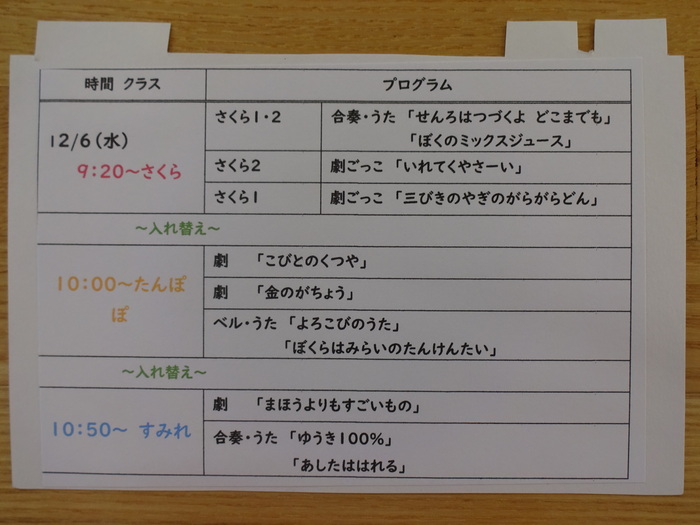 時間 クラス
プログラム
12/6(水)
9:20~さくら
さくら1・2
合奏・うた 「せんろはつづくよ どこまでも」
「ぼくのミックスジュース」
さくら2
劇ごっこ 「いれてくやさーい」
さくら1
劇ごっこ 「三びきのやぎのがらがらどん」
~入れ替え~
10:00~たんぽ
ぽ
劇 「こびとのくつや」
劇 「金のがちょう」
ベル・うた 「よろこびのうた」
「ぼくらはみらいのたんけんたい」
~入れ替え~
10:50~ すみれ
劇 「まほうよりもすごいもの」
合奏・うた 「ゆうき100%」
「あしたははれる」